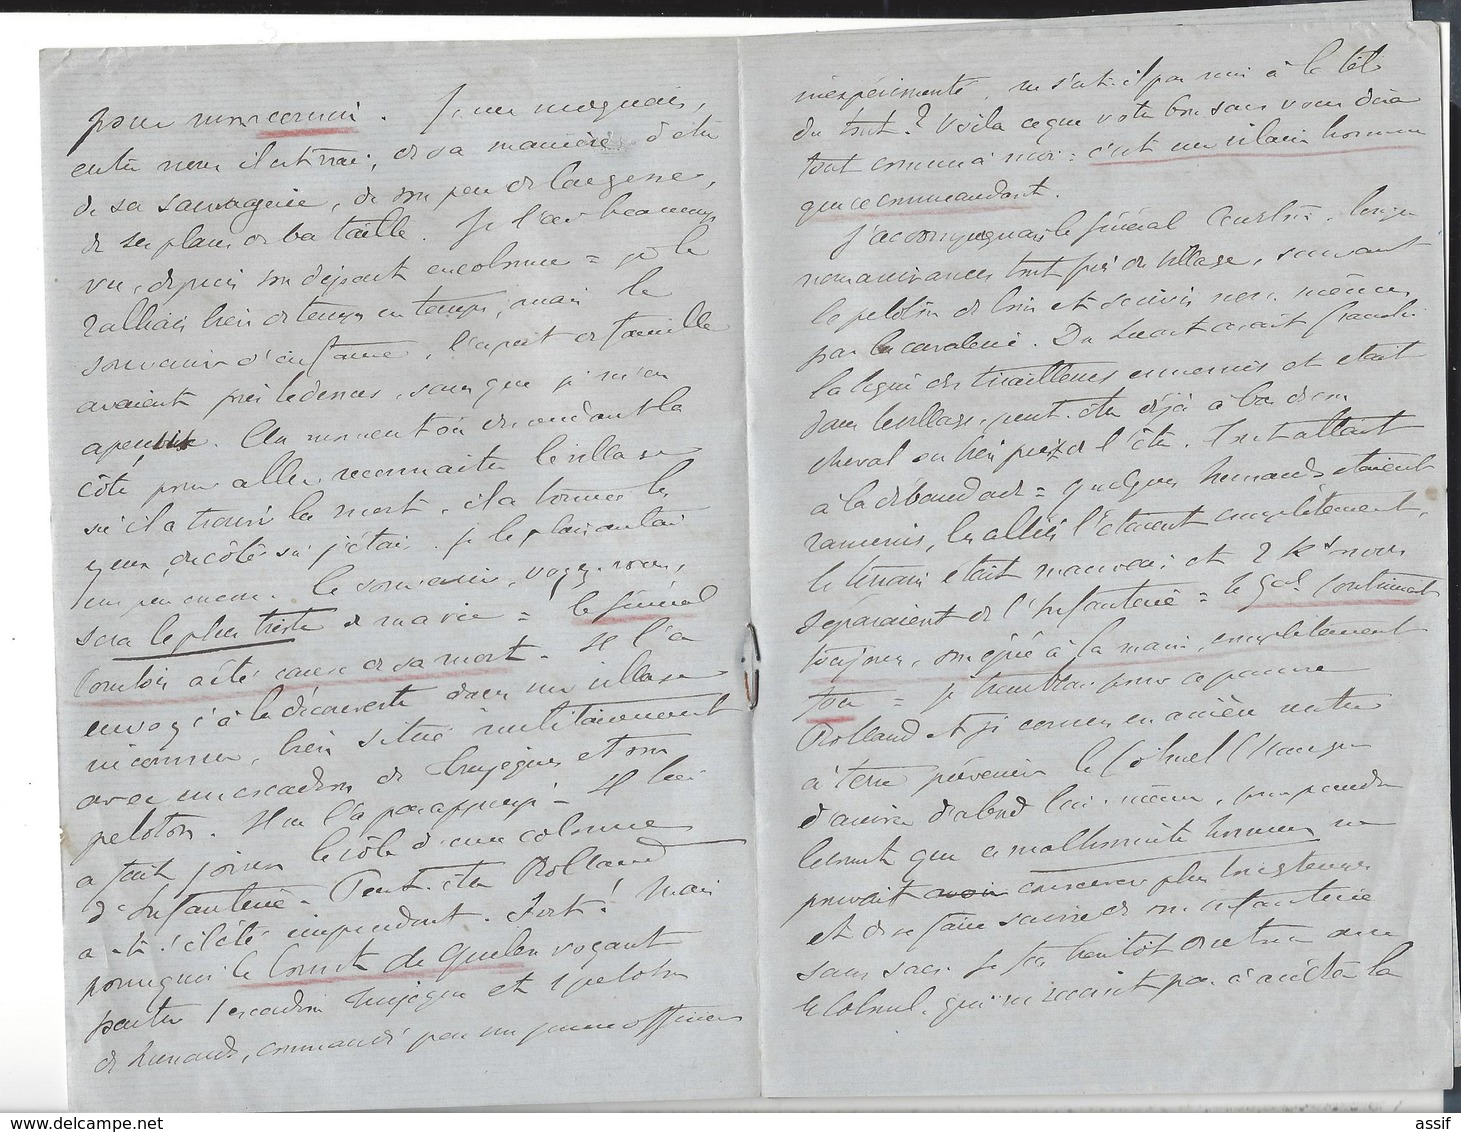 pour mon cousin. Je me moquais,
entre nous il est vrai, de sa manière d'être
de sa sauvagerie, de son peu de largesse,
de ses plans de bataille. Je l'ai beaucoup
vu, depuis son départ en colonne = je le
raillais bien de temps en temps, mais le
souvenir d'enfance, l'esprit de famille
avaient pris le dessus, sans que je m'en
aperçus. Au moment où descendant la
côte pour aller reconnaître le village
où il a trouvé la mort, il a tourné les
yeux, du côté où j'étais. Je le plaisantai
un peu encore. Ce souvenir, voyez-vous,
sera le plus triste de ma vie = le général
Courtois a été cause de sa mort. Il l'a
envoyé à la découverte dans un village
inconnu, bien situé militairement
avec un escadron de et son
peloton. Il ne l'a pas appuyé. Il lui
a fait jouer le rôle d'une colonne
d'Infanterie. Peut-être Rolland
a-t-il été imprudent. Fort! Mais
pourquoi le Comte de Quelen voyant
partir 1 escadron et 1 peloton
de hussards, commandé par un jeune officier
inexpérimenté, ne s'est-il pas mis à la tête
du tout? Voilà ce que votre bon sens vous dira
tout comme à moi = c'est un vilain homme
que ce commandant.
J'accompagnais le général
nous arrivâmes tout près du village, suivant
le peloton de loin et suivis nous-mêmes
par la cavalerie. Du avait franchi
la ligne des tirailleurs ennemis et était
dans le village, peut-être déjà à bas de son
cheval ou bien près de l'être. Tout allait
à la débandade = quelques hussards étaient
ramenés, les alliés l'étaient complètement,
le terrain était mauvais et 2 Ks nous
séparaient de l'Infanterie = le Gal continuait
toujours, son épée à la main, complètement
fou = je tremblais pour ce pauvre
Rolland et je courus en arrière mettre
à terre prévenir le Colonel
d'arriver d'abord lui-même, pour prendre
le comt que ce malhonnête homme ne
pouvait conserver plus longtemps
et de se faire suivre de son infanterie
sans sacs. Je fus bientôt de retour avec
le Colonel, qui ne réussit pas à arrêter la
assif